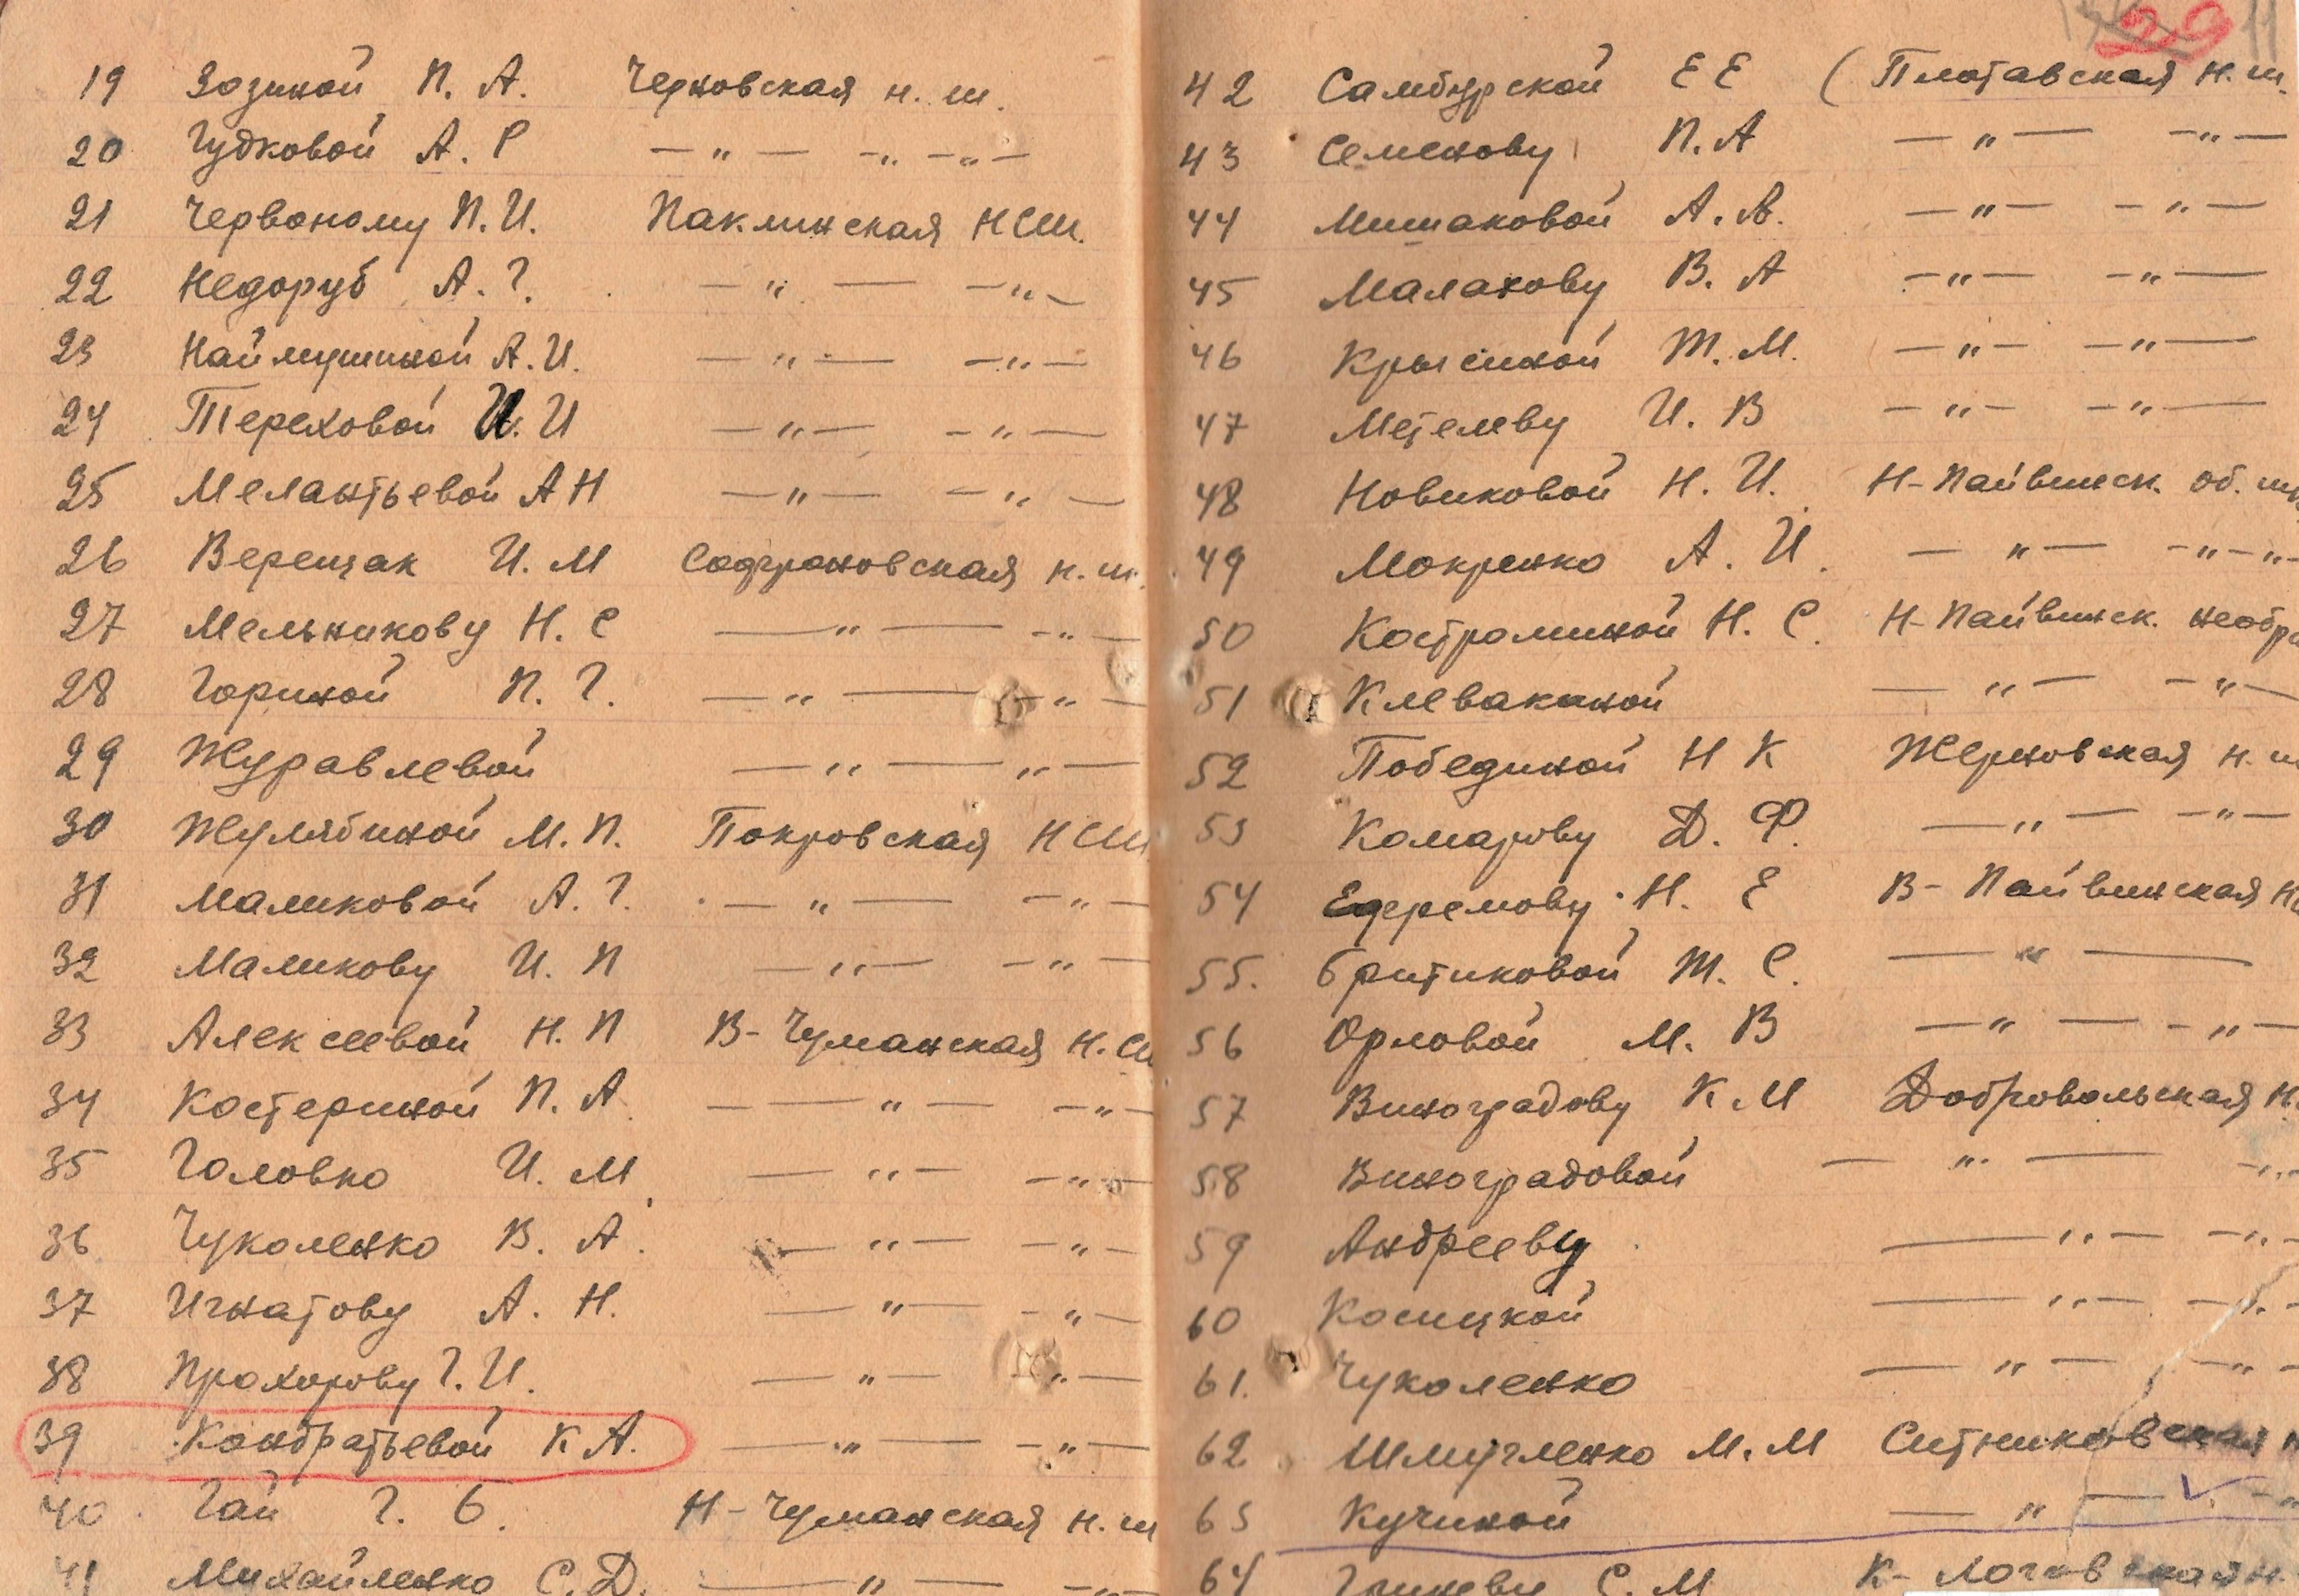 19 Зозиной П. А. Черновская н. ш.
20 Гудковой А. Р — „ — -„ -„-
21 Червоному П. И. Паклинская НСШ.
22 Недоруб А. Г. — „ — -„-
23 Наймушиной А. И. — „ — -„-
24 Тереховой И. И — „ — -„-
25 Мелантьевой А Н — „ — -„-
26 Верещак И. М Софроновская н. ш.
27 Мельникову Н. С — „ — -„-
28 Гориной П. Г. — „ — -„-
29 Журавлевой — „ — „ —
30 Жулябиной М. П. Покровская НСШ
31 Маликовой А. Г. — „ — -„-
32 Маликову И. П — „ — -„-
33 Алексеевой Н. П В-Чуманская Н. С
34 Костериной П. А. — „ — -„-
35 Головко И. М. — „ — -„-
36 Чуколенко В. А. — „ — -„-
37 Игнатову А. Н. — „ — -„-
38 Прохорову Г. И. — „ — -„-
39 Кондратьевой К А. — „ — -„-
40 Гай Г. Б. Н-Чуманская н. ш
41 Михайленко С. Д. — „ — -„-
29 11
42 Самбурской Е Е ( Плотавская н. ш.
43 Семенову П. А — „ — -„-
44 Мишаковой А. А. — „ — -„-
45 Малахову В. А — „ — -„-
46 Крысиной Т. М. — „ — -„-
47 Метелеву И. В — „ — -„-
48 Новиковой Н. И. Н-Пайвинск. об.
49 Мокренко А. И. — „ — -„-„-
50 Костроминой Н. С. Н-Пайвинск. необр
51 Клевакиной — „ — -„-
52 Побединой Н К Жерновская н. ш
53 Комарову Д. Ф. — „ — -„-
54 Ефремову Н. Е В-Пайвинская Н
55. Бритиковой Т. С. — „ —
56 Орловой М. В — „ — -„-
57 Виноградову К. М Добровольская Н.
58 Виноградовой — „ — -„-
59 Андрееву — „ — -„-
60 Косицкой — „ — -„-
61. Чуколенко — „ — -„-
62 М. М Ситниковская н
63 Кучиной — „ — -„
64 С. М К-Логовская н.